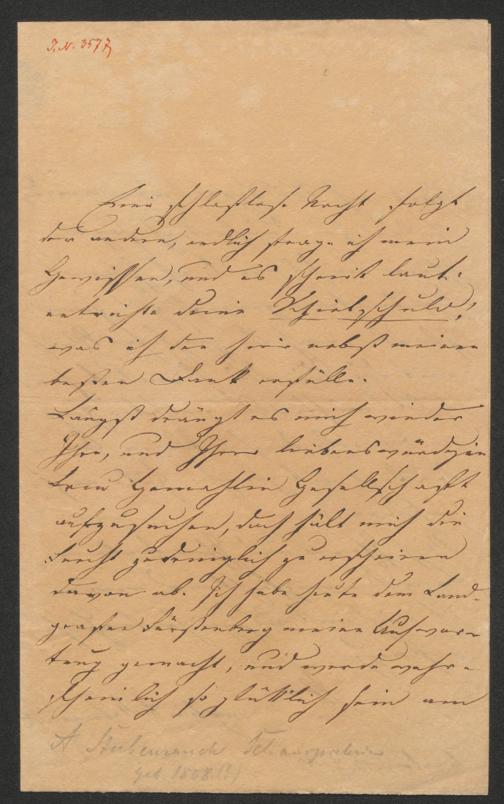 I.N. 3577
Eine schlaflose Nacht folgt
der andern, endlich frage ich mein
Gewissen, und es schreit laut:
entrichte deine Schuld!
was ich denn hier nebst meinem
besten Dank erfülle.
Längst drängt es mich wieder
Ihre, und Ihrer liebenswürdigen
Frau Gemahlin Gesellschaft
aufzusuchen, doch hält mich die
Furcht zudringlich zu erscheinen
davon ab. Ich habe heute dem Land-
grafen Fürstenberg meine Aufwar-
tung gemacht, und werde wahr-
scheinlich so glücklich sein am
A Stubenrauch Schauspielerin
geb. 1808 (?)